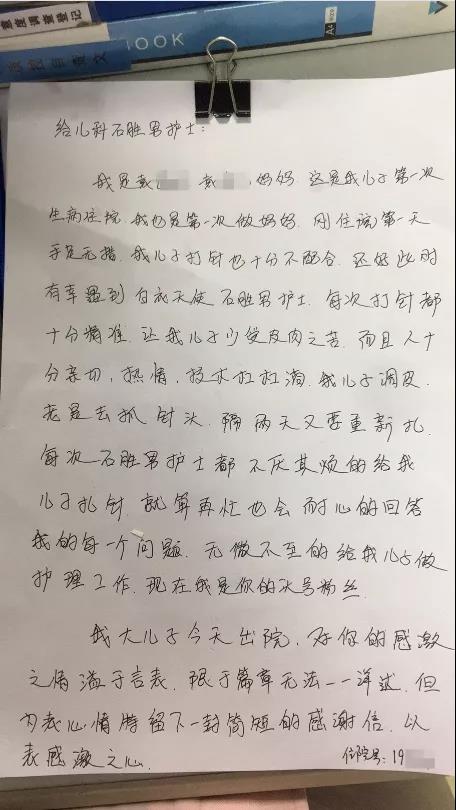 意度调查登记
BOOK
A4
给儿科石胜男护士：
我是黄 黄 妈妈.这是我儿子第一次
生病住院.我也是第一次做妈妈.刚住院第一天
手足无措.我儿子打针也十分不配合.还好此时
有幸遇到白衣天使石胜男护士.每次打针都
十分精准.让我儿子少受皮肉之苦.而且人十
分亲切，热情，技术杠杠滴.我儿子调皮.
老是去抓针头.隔两天又要重新扎.
每次石胜男护士都不厌其烦的给我
儿子扎针.就算再忙也会耐心的回答
我的每一个问题.无微不至的给我儿子做
护理工作.现在我是你的头号粉丝.
我大儿子今天出院.对你的感激
之情溢于言表.限于篇章无法一一详述.但
为表心情特留下一封简短的感谢信.以
表感激之心.
住院号:19